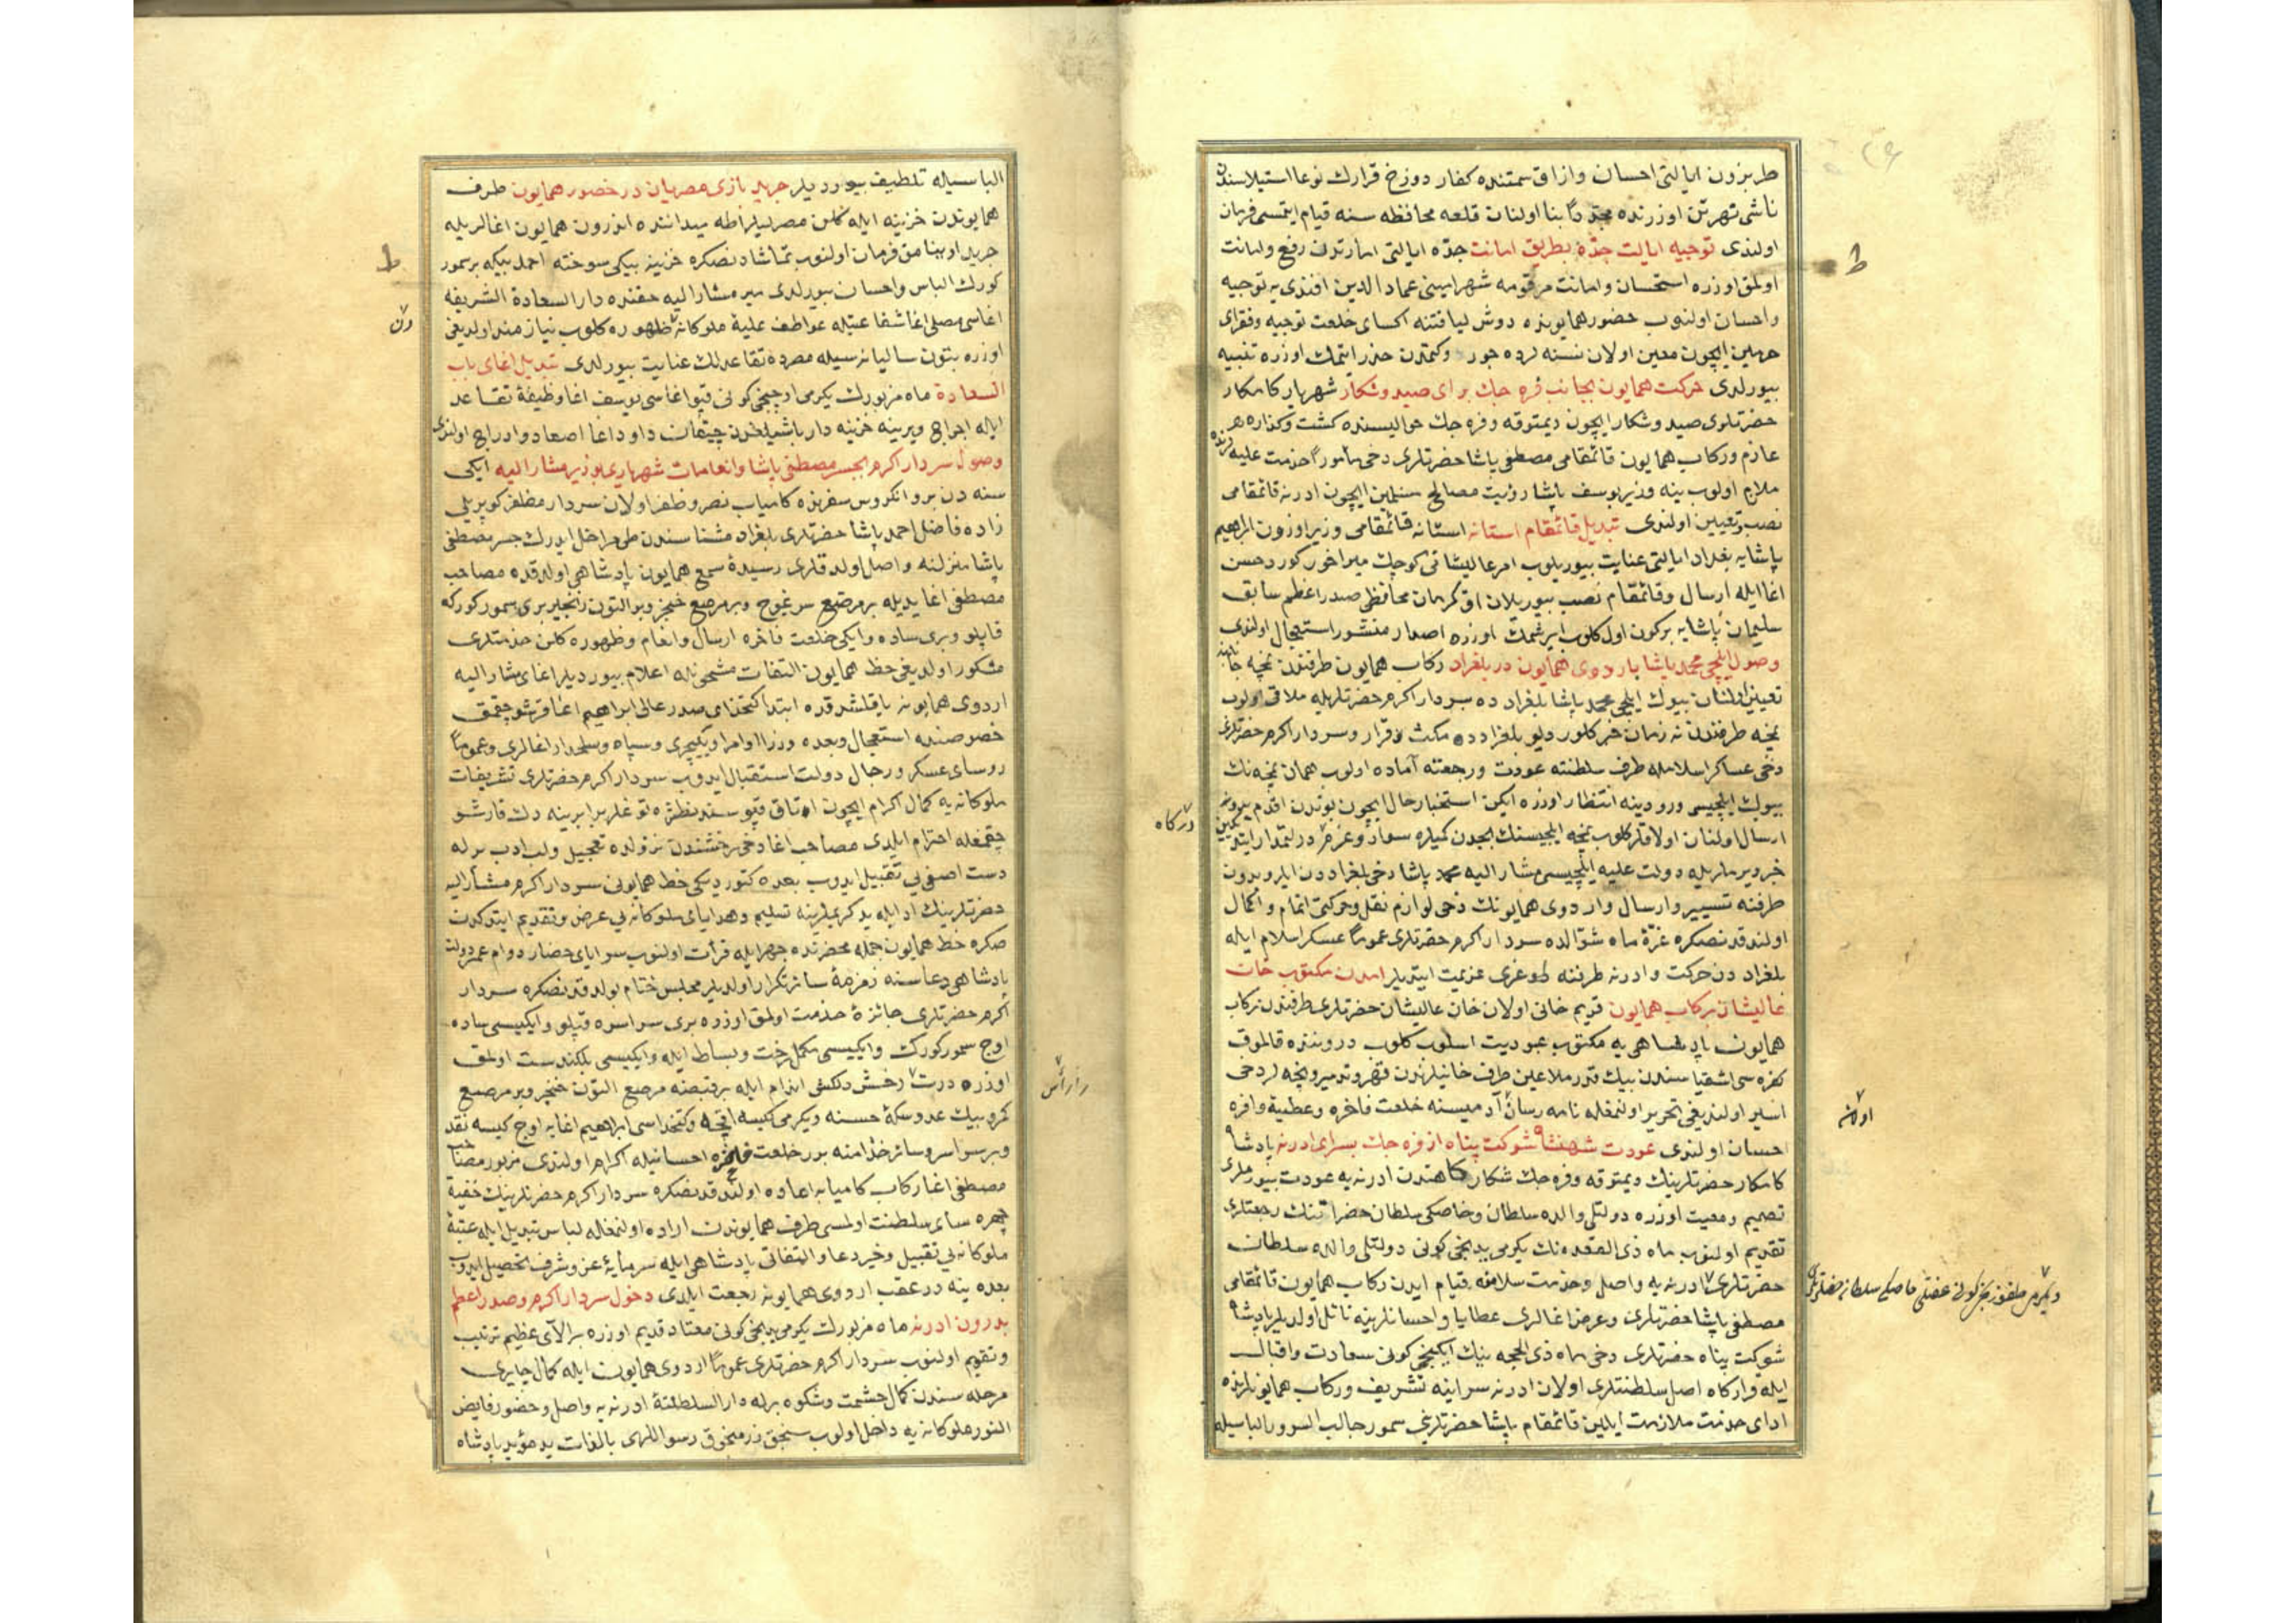 طربزون ایالتی احسان وازاق سمتنده کفار دوزخ قرارك نوعا استیلاسندن
ناشی نهرتن اوزرنده مجددا بنا اولنان قلعه محافظه سنه قیام ایتمسی فرمان
اولندی توجیه ایالت جدّه بطریق امانت جدّه ایالتی امارتدن رفع وامانت
اولمق اوزره استحسان وامانت مرقومه شهرامینی عماد الدین افندی یه توجیه
واحسان اولنوب حضور همایونده دوش لیاقتنه اکسای خلعت توجیه وفقرای
حرمین ایچون معین اولان نسنه لرده جور وکمتدن حذر ایتمك اوزره تنبیه
بیورلدی حرکت همایون بجانب فره جك برای صید وشکار شهریار کامکار
حضرتلری صید وشکار ایچون دیمتوقه وفره جك حوالیسنده کشت وکذاره
عازم ورکاب همایون قائمقامی مصطفی پاشا حضرتلری دخی مأمورا خدمت علیه لرنده
ملازم اولوب ینه وزیر یوسف پاشا رؤیت مصالح مسلمین ایچون ادرنه قائمقامی
نصب وتعیین اولندی تبدیل قائمقام استانه استانه قائمقامی وزیر اوزون ابراهیم
پاشایه بغداد ایالتی عنایت بیوریلوب امر عالیشانی کوچك میراخور کورد حسن
اغا ایله ارسال وقائمقام نصب بیوریلان اق کرمان محافظی صدر اعظم سابق
سلیمان پاشایه برکون اول کلوب ایرشمك اوزره اصدار منشور استعجال اولندی
وصول ایلچی محمد پاشا باردوی همایون در بلغراد رکاب همایون طرفندن نمچه جانبنه
تعیین اولنان بیوك ایلچی محمد پاشا بلغراد ده سردار اکرم حضرتلریله ملاقی اولوب
نمچه طرفندن نه زمان خبر کلور دیو بلغرادده مکث وقرار وسردار اکرم حضرتلری
دخی عساکر اسلامله طرف سلطنته عودت ورجعته آماده اولوب همان نمچه نك
بیوك ایلچیسی ورودینه انتظار اوزره ایکن استخبار حال ایچون بوندن اقدم
ارسال اولنان اولاقلر کلوب نمچه ایلچیسنك بجدن کمیلره سوار وعزم
خبر ویرملریله دولت علیه ایلچیسی مشار الیه محمد پاشا دخی بلغراددن ایلرو بدون
طرفنه تسییر وارسال واردوی همایونك دخی لوازم نقل وحرکتی اتمام واکمال
اولندقدنصکره غرّۀ ماه شوّالده سردار اکرم حضرتلری عموما عسکر اسلام ایله
بلغراد دن حرکت وادرنه طرفنه طوغری عزیمت ایتدیلر امدن مکتوب خان
عالیشان برکاب همایون قریم خانی اولان خان عالیشان حضرتلری طرفندن رکاب
همایون پادشاهی یه مکتوب عبودیت اسلوب کلوب دروننده قالموق
کفره سی اشقیاسندن بیك قدر ملاعین طرف خانیلرندن قهر وتدمیر ونیجه لر دخی
اسیر اولندیغی تحریر اولنمغله نامه رسان آدمیسنه خلعت فاخره وعطیۀ وافره
احسان اولندی عودت شهنشاه شوکت پناه از فره جك بسرای ادرنه پادشاه
کامکار حضرتلرینك دیمتوقه وفره جك شکارکاهندن ادرنه یه عودت بیورملری
تصمیم ومعیت اوزره دولتلی والده سلطان وخاصکی سلطان حضراتنك رجعتلری
تقدیم اولنوب ماه ذی القعده نك یکرمی یدنجی کونی دولتلی والده سلطان
حضرتلری ادرنه یه واصل وخدمت سلامنه قیام ایدن رکاب همایون قائمقامی
مصطفی پاشا حضرتلری وعرض اغالری عطایا واحسانلرینه نائل اولدیلر پادشاه
شوکت پناه حضرتلری دخی ماه ذی الحجه نیك ایکینجی کونی سعادت واقبال
ایله وارکاه اصل سلطنتلری اولان ادرنه سراینه تشریف ورکاب همایونلرنده
ادای خدمت ملازمت ایلین قائمقام پاشا حضرتلرینی سمور جالب السرور الباسیله
ط
درکاه
اولان
ویکرمی طقوزنجی کونی عفتلی خاصکی سلطان حضرتلری
الباسیله تلطیف بیوردیلر جرید بازی مصریان در حضور همایون طرف
همایوندن خزینه ایله کلن مصرلیلر اطه میداننده اندرون همایون اغالریله
جرید اوینامق فرمان اولنوب تماشادنصکره خزینه بیکی سوخته احمد بیکه بر سمور
کورك الباس واحسان بیورلدی میر مشار الیه حقنده دار السعادة الشریفه
اغاسی مصلی اغا شفاعتیله عواطف علیۀ ملوکانه ظهوره کلوب نیازمند اولدیغی
اوزره بتون سالیانه سیله مصرده تقاعدلك عنایت بیورلدی تبدیل اغای باب
السعادة ماه مزبورك یکرمی اوچنجی کونی قپو اغاسی یوسف اغا وظیفۀ تقاعد
ایله اخراج ویرینه خزینه دار باشیلقدن چیقان داود اغا اصعاد وادراج اولندی
وصول سردار اکرم بجسر مصطفی پاشا وانعامات شهریاری بوزیر مشار الیه ایکی
سنه دن برو انکروس سفرنده کامیاب نصر وظفر اولان سردار مظفر کوپریلی
زاده فاضل احمد پاشا حضرتلری بلغراد مشتاسندن طی مراحل ایدرك جسر مصطفی
پاشا منزلنه واصل اولدقلری رسیدۀ سمع همایون پادشاهی اولدقده مصاحب
مصطفی اغا یدیله بر مرصّع سرغوج وبر مرصع خنجر وبر التون زنجیر بری سمور کورکه
قاپلو وبری ساده وایکی خلعت فاخره ارسال وانعام وظهوره کلن خدمتلری
مشکور اولدیغی خط همایون التفات مشحونله اعلام بیوردیلر اغای مشار الیه
اردوی همایونه یاقلشدقده ابتدا کتخدای صدر عالی ابراهیم اغا قرشو چقمق
خصوصنده استعجال وبعده وزرا وامرا ویکیچری وسپاه وسلحدار اغالری وعموما
روسای عسکر ورجال دولت استقبال ایدوب سردار اکرم حضرتلری تشریفات
ملوکانه یه کمال اکرام ایچون اوتاق قپوسندن طشره توغلر برابرینه دك قارشو
چقمغله احترام ایلدی مصاحب اغا دخی رخشندن نزولده تعجیل ولب ادب برله
دست اصفی یی تقبیل ایدوب بعده کتوردیکی خط همایونی سردار اکرم مشار الیه
حضرتلرینك ید کریملرینه تسلیم وهدایای ملوکانه یی عرض وتقدیم ایتدکدن
صکره خط همایون جمله محضرنده جهر ایله قرائت اولنوب سراپای حضار دوام عمر ودولت
پادشاهی دعاسنه زمزمۀ ساز تکرار اولدیلر مجلس ختام بولدقدنصکره سردار
اکرم حضرتلری جائزۀ خدمت اولمق اوزره بری سراسره قپلو وایکیسی ساده
اوج سمور کورك وایکیسی مکمل رخت وبساط ایله وایکیسی یلکندست اولمق
اوزره درت رخش دلکش اندام ایله بر قبضه مرصع التون خنجر وبر مرصع
کمر وبیك عدد سکۀ حسنه ویکرمی کیسه اقچه وکتخداسی ابراهیم اغایه اوچ کیسه نقد
وبر سراسر وسائر خدامنه برر خلعت فاخره احسانیله اکرام اولندی مزبور مصاحب
مصطفی اغا رکاب کامیابه اعاده اولندقدنصکره سردار اکرم حضرتلرینك خفیة
چهره سای سلطنت اولمسی طرف همایوندن اراده اولنمغله لباس تبدیل ایله عتبۀ
ملوکانه یی تقبیل وخیر دعا والتفات پادشاهی ایله سرمایۀ عز وشرف تحصیل ایدوب
بعده ینه در عقب اردوی همایونه رجعت ایلدی دخول سردار اکرم وصدر اعظم
بدرون ادرنه ماه مزبورك یکرمی یدنجی کونی معتاد قدیم اوزره بر الای عظیم ترتیب
وتقویم اولنوب سردار اکرم حضرتلری عموما اردوی همایون ایله کمال چایری
مرحله سندن کمال حشمت وشکوه برله دار السلطنۀ ادرنه یه واصل وحضور فایض
النور ملوکانه یه داخل اولوب سنجق زر منجوق رسول اللهی بالذات ید مؤید پادشاه
ط